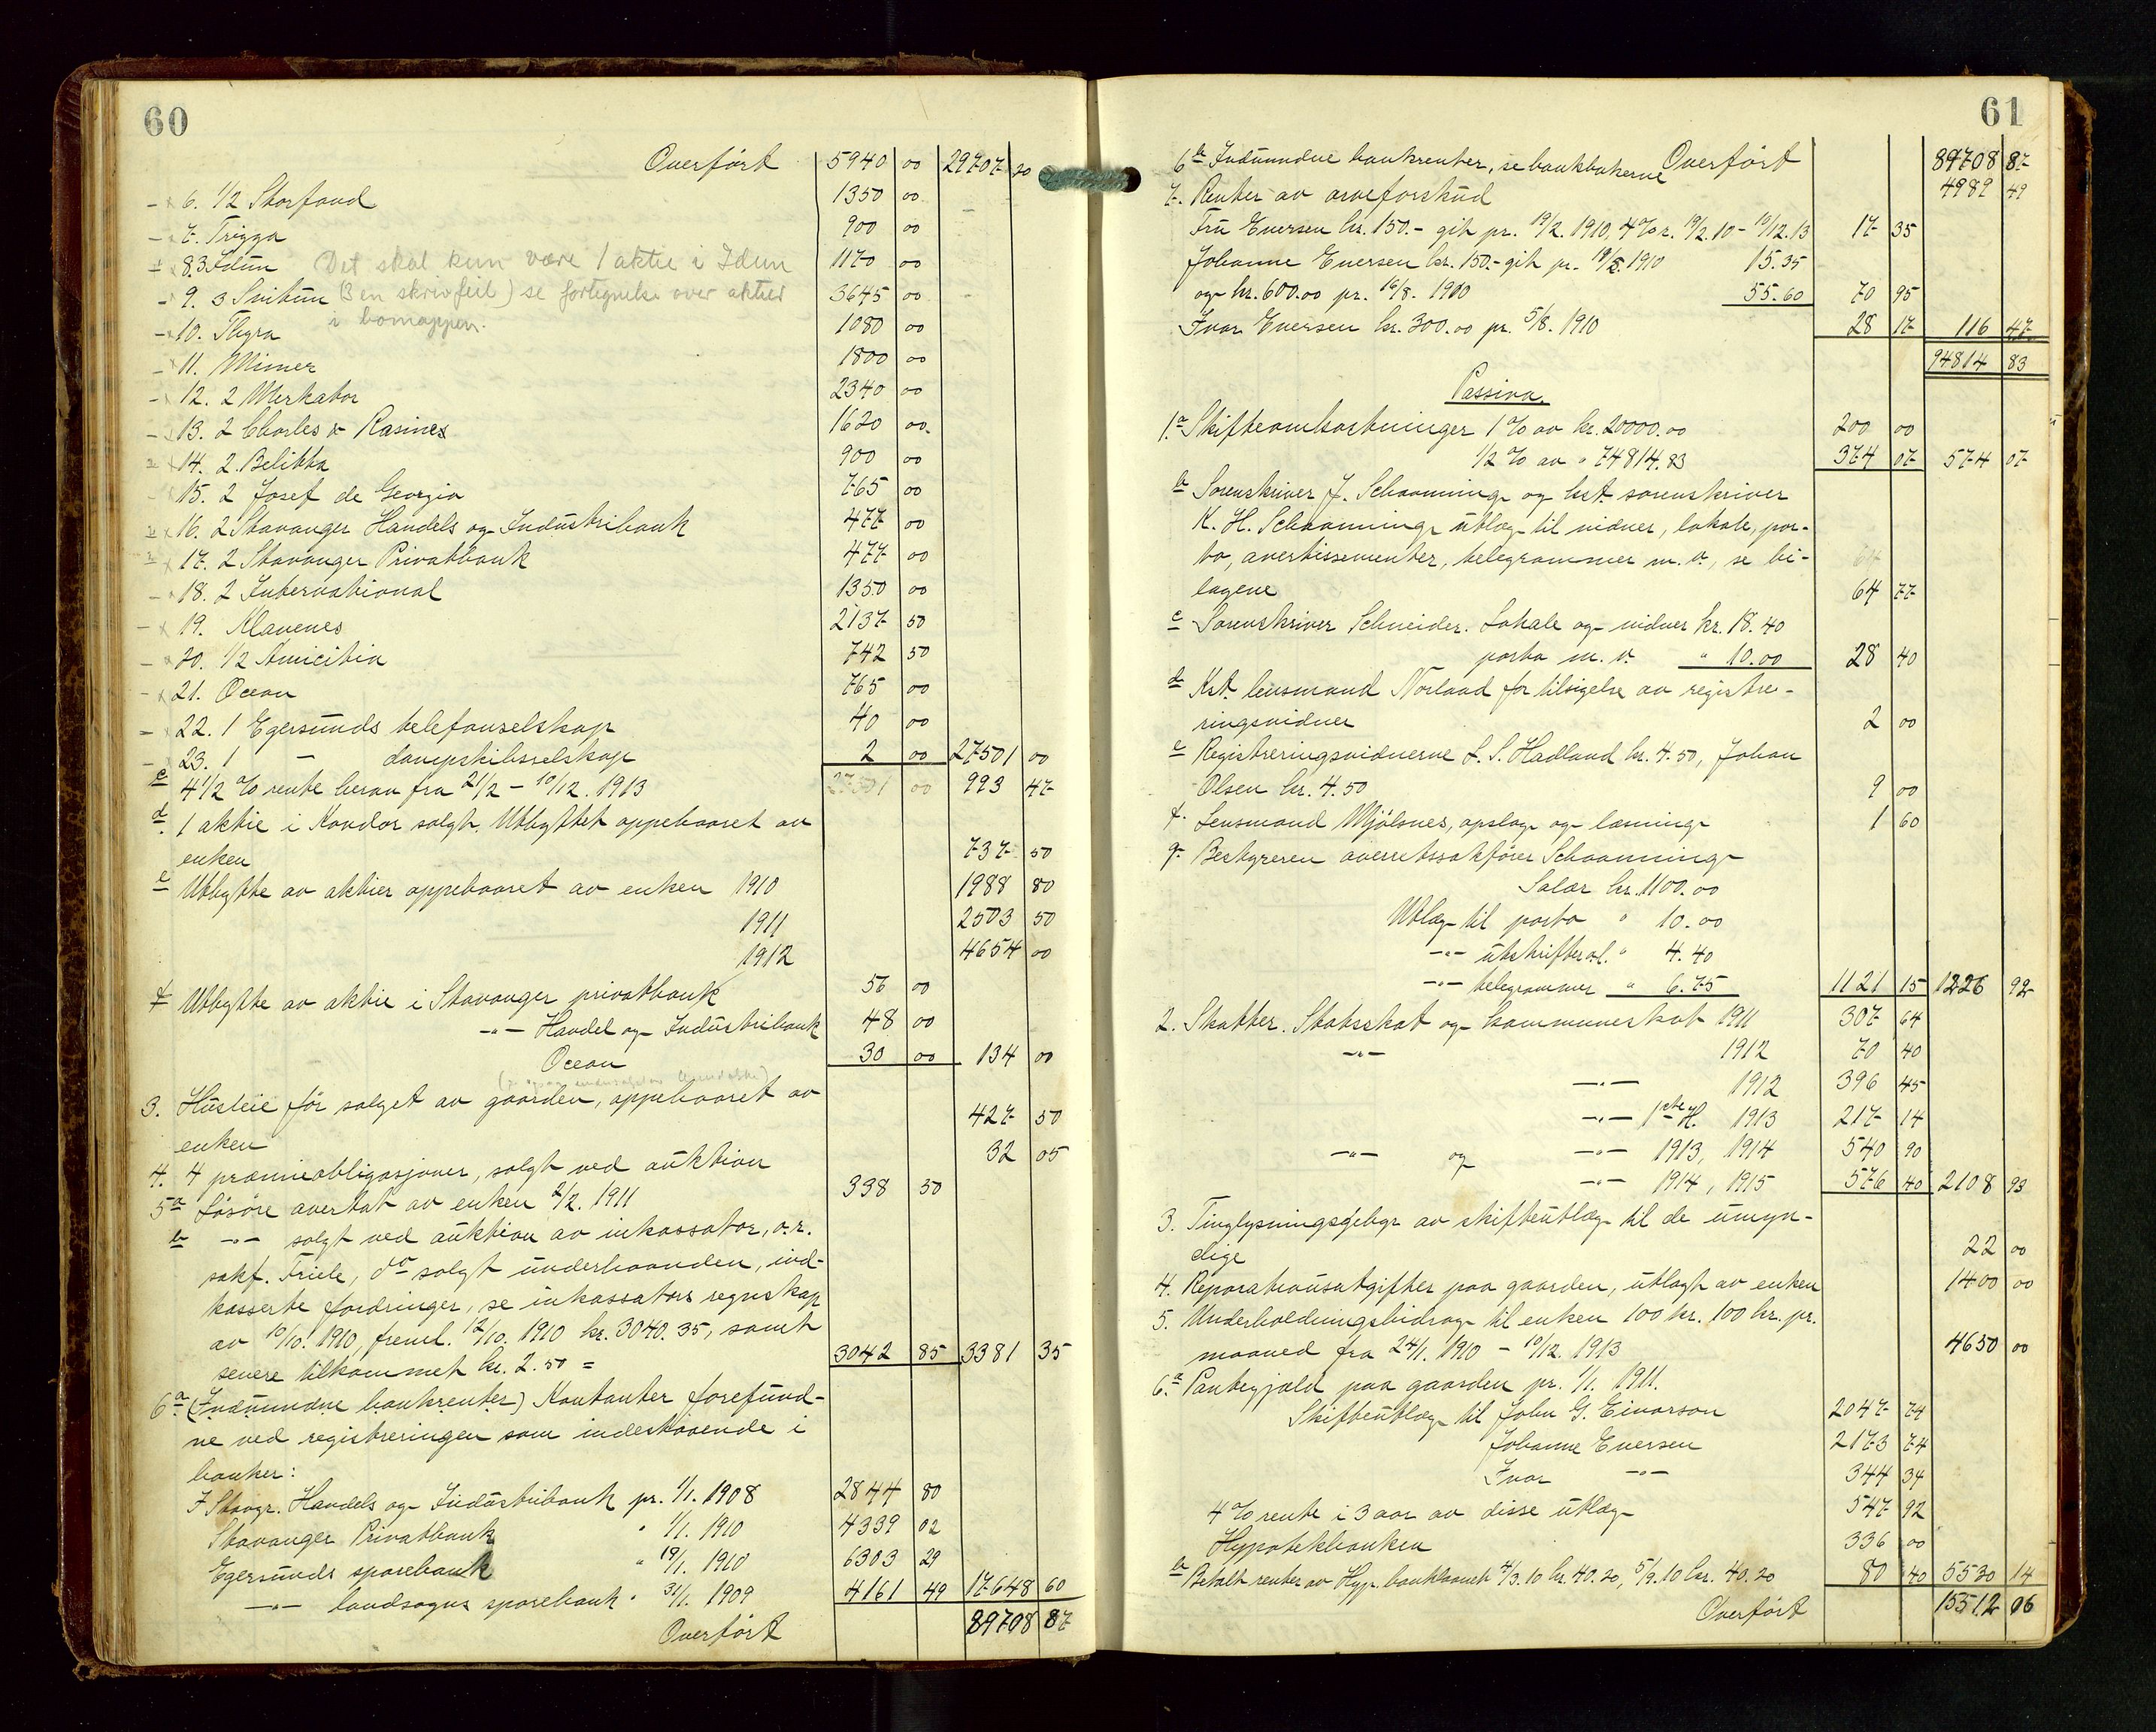 60
Overført 5940 00 29707 20
6. 1/2 Storfond 1350 00
7. Trigga 900 00
8. 3 Idun Det skal kun være 1 aktie i Idun 1170 00
9. 3 Snitun (3 en skrivfeil) se fortegnelse over aktier 3645 00
i bomappen.
10. Thyra 1080 00
11. Mimer 1800 00
12. 2 Merkator 2340 00
13. 2 Charles & Rasines 1620 00
14. 2 Belikta 900 00
15. 2 Josef de Georgio 765 00
16. 2 Stavanger Handels og Industribank 477 00
17. 2 Stavanger Privatbank 477 00
18. 2 International 1350 00
19. Klavenes 2137 50
20. 1/2 Amicitia 742 50
21. Ocean 765 00
22. 1 Egersunds telefonselskap 40 00
23. 1 — dampskibsselskap 2 00 27501 00
c 4 1/2 % rente herav fra 21/2 - 10/12. 1913 27501 00 993 47
d. 1 aktie i Kondor solgt. Utbyttet oppebaaret av
enken 737 50
e Utbytte av aktier oppebaaret av enken 1910 1988 80
1911 2503 50
1912 4654 00
f Utbytte av aktie i Stavanger privatbank 56 00
-"- Handel og Industribank 48 00
Ocean 30 00 134 00
3. Husleie før salget av gaarden, oppebaaret av
enken 427 50
4. 4 præmieobligasjoner, solgt ved auktion 32 05
5a Løsøre overtat av enken 2/2. 1911 338 50
b -"- solgt ved auktion av inkassator, o.r.
sakf. Friele, do solgt underhaanden, ind-
kasserte fordringer, se inkassators regnskap
av 10/10. 1910, freml. 12/10. 1910 kr. 3040.35, samt
senere tilkommet kr. 2.50 = 3042 85 3381 35
6a. (Indvundne bankrenter) Kontanter forefund-
ne ved registreringen som indestaaende i
banker:
I Stavgr. Handels og Industribank pr. 1/1. 1908 2844 80
Stavanger Privatbank " 1/1. 1910 4339 02
Egersunds sparebank " 19/1. 1910 6303 29
-"- landsogns sparebank " 31/1. 1909 4161 49 17648 60
Overført 89708 87
61
6b Indvundne bankrenter, se bankbøkerne Overført 89708 87
7. Renter av arveforskud 4989 49
Fru Eversen kr. 150.- git pr. 19/2. 1910, 4% r. 19/2.10 - 10/12.13 17 35
Johanne Eversen kr. 150.- git pr. 19/2. 1910 15.35
og kr. 600.00 pr. 16/8. 1910 55.60 70 95
Ivar Eversen kr. 300.00 pr. 5/8. 1910 28 17 116 47
94814 83
Passiva.
1.a Skifteomkostninger 1% av kr. 20000.00 200 00
1/2 % av " 74814.83 374 07 574 07
b Sorenskriver J. Schaanning og kst. sorenskriver
K. H. Schaanning utlæg til vidner, lokale, por-
to, avertissementer, telegrammer m. v., se bi-
lagene 64 77
c Sorenskriver Schneider. Lokale og vidner kr. 18.40
porto m. v. " 10.00 28 40
d Kst. lensmand Norland for tilsigelse av registre-
ringsvidner 2 00
e Registreringsvidnerne L. S. Hadland kr. 4.50, Johan
Olsen kr. 4.50 9 00
f. Lensmand Mjølsnes, opslag og læsning 1 60
g. Bestyreren overretssakfører Schaanning
Salær kr. 1100.00
Utlæg til porto " 10.00
-"- utskrifter ol. " 4.40
-"- telegrammer " 6.75 1121 15 1226 92
2. Skatter. Statsskat og kommuneskat 1911 307 64
-"- 1912 70 40
-"- 1912 396 45
-"- 1ste H. 1913 217 14
-"- og -"- 1913, 1914 540 90
-"- 1914, 1915 576 40 2108 93
3. Tinglysningsgebyr av skifteutlæg til de umyn-
dige 22 00
4. Reparationsutgifter paa gaarden, utlagt av enken 1400 00
5. Underholdningsbidrag til enken 100 kr. 100 kr. pr.
maaned fra 24/1. 1910 - 10/12. 1913 4650 00
6.a Pantegjæld paa gaarden pr. 1/1. 1911.
Skifteutlæg til John G. Einarson 2047 74
Johanne Eversen 2173 74
Ivar -"- 344 34
4% rente i 3 aar av disse utlæg 547 92
Hypotekbanken 336 00
b Betalt renter av Hyp. banklaanet 4/3.10 kr. 40.20, 5/9.10 kr. 40.20 80 40 5530 14
Overført 15512 06